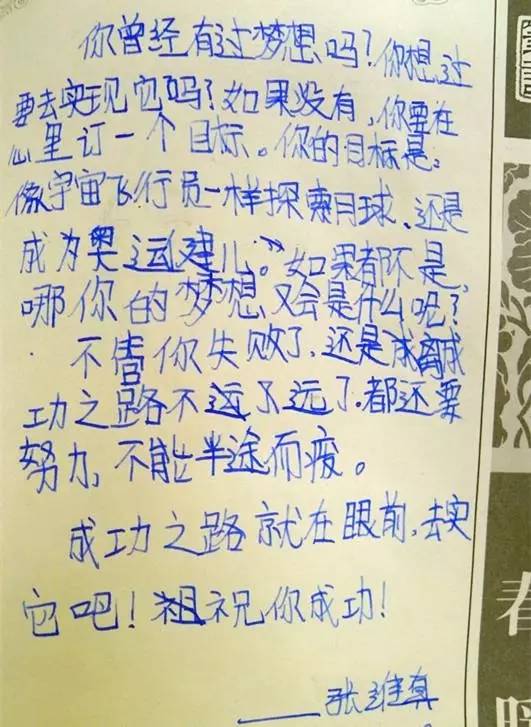 你曾经有过梦想吗?你想过
要去实现它吗?如果没有,你要在
心里订一个目标。你的目标是:
像宇宙飞行员一样探索月球、还是
成为奥运健儿。如果都不是,
哪你的梦想又会是什么呢?
不管你失败了,还是成离成
功之路不远了远了.都还要
努力,不能半途而疲。
成功之路就在眼前,去实
它吧!祖祝你成功!
——张维真
春